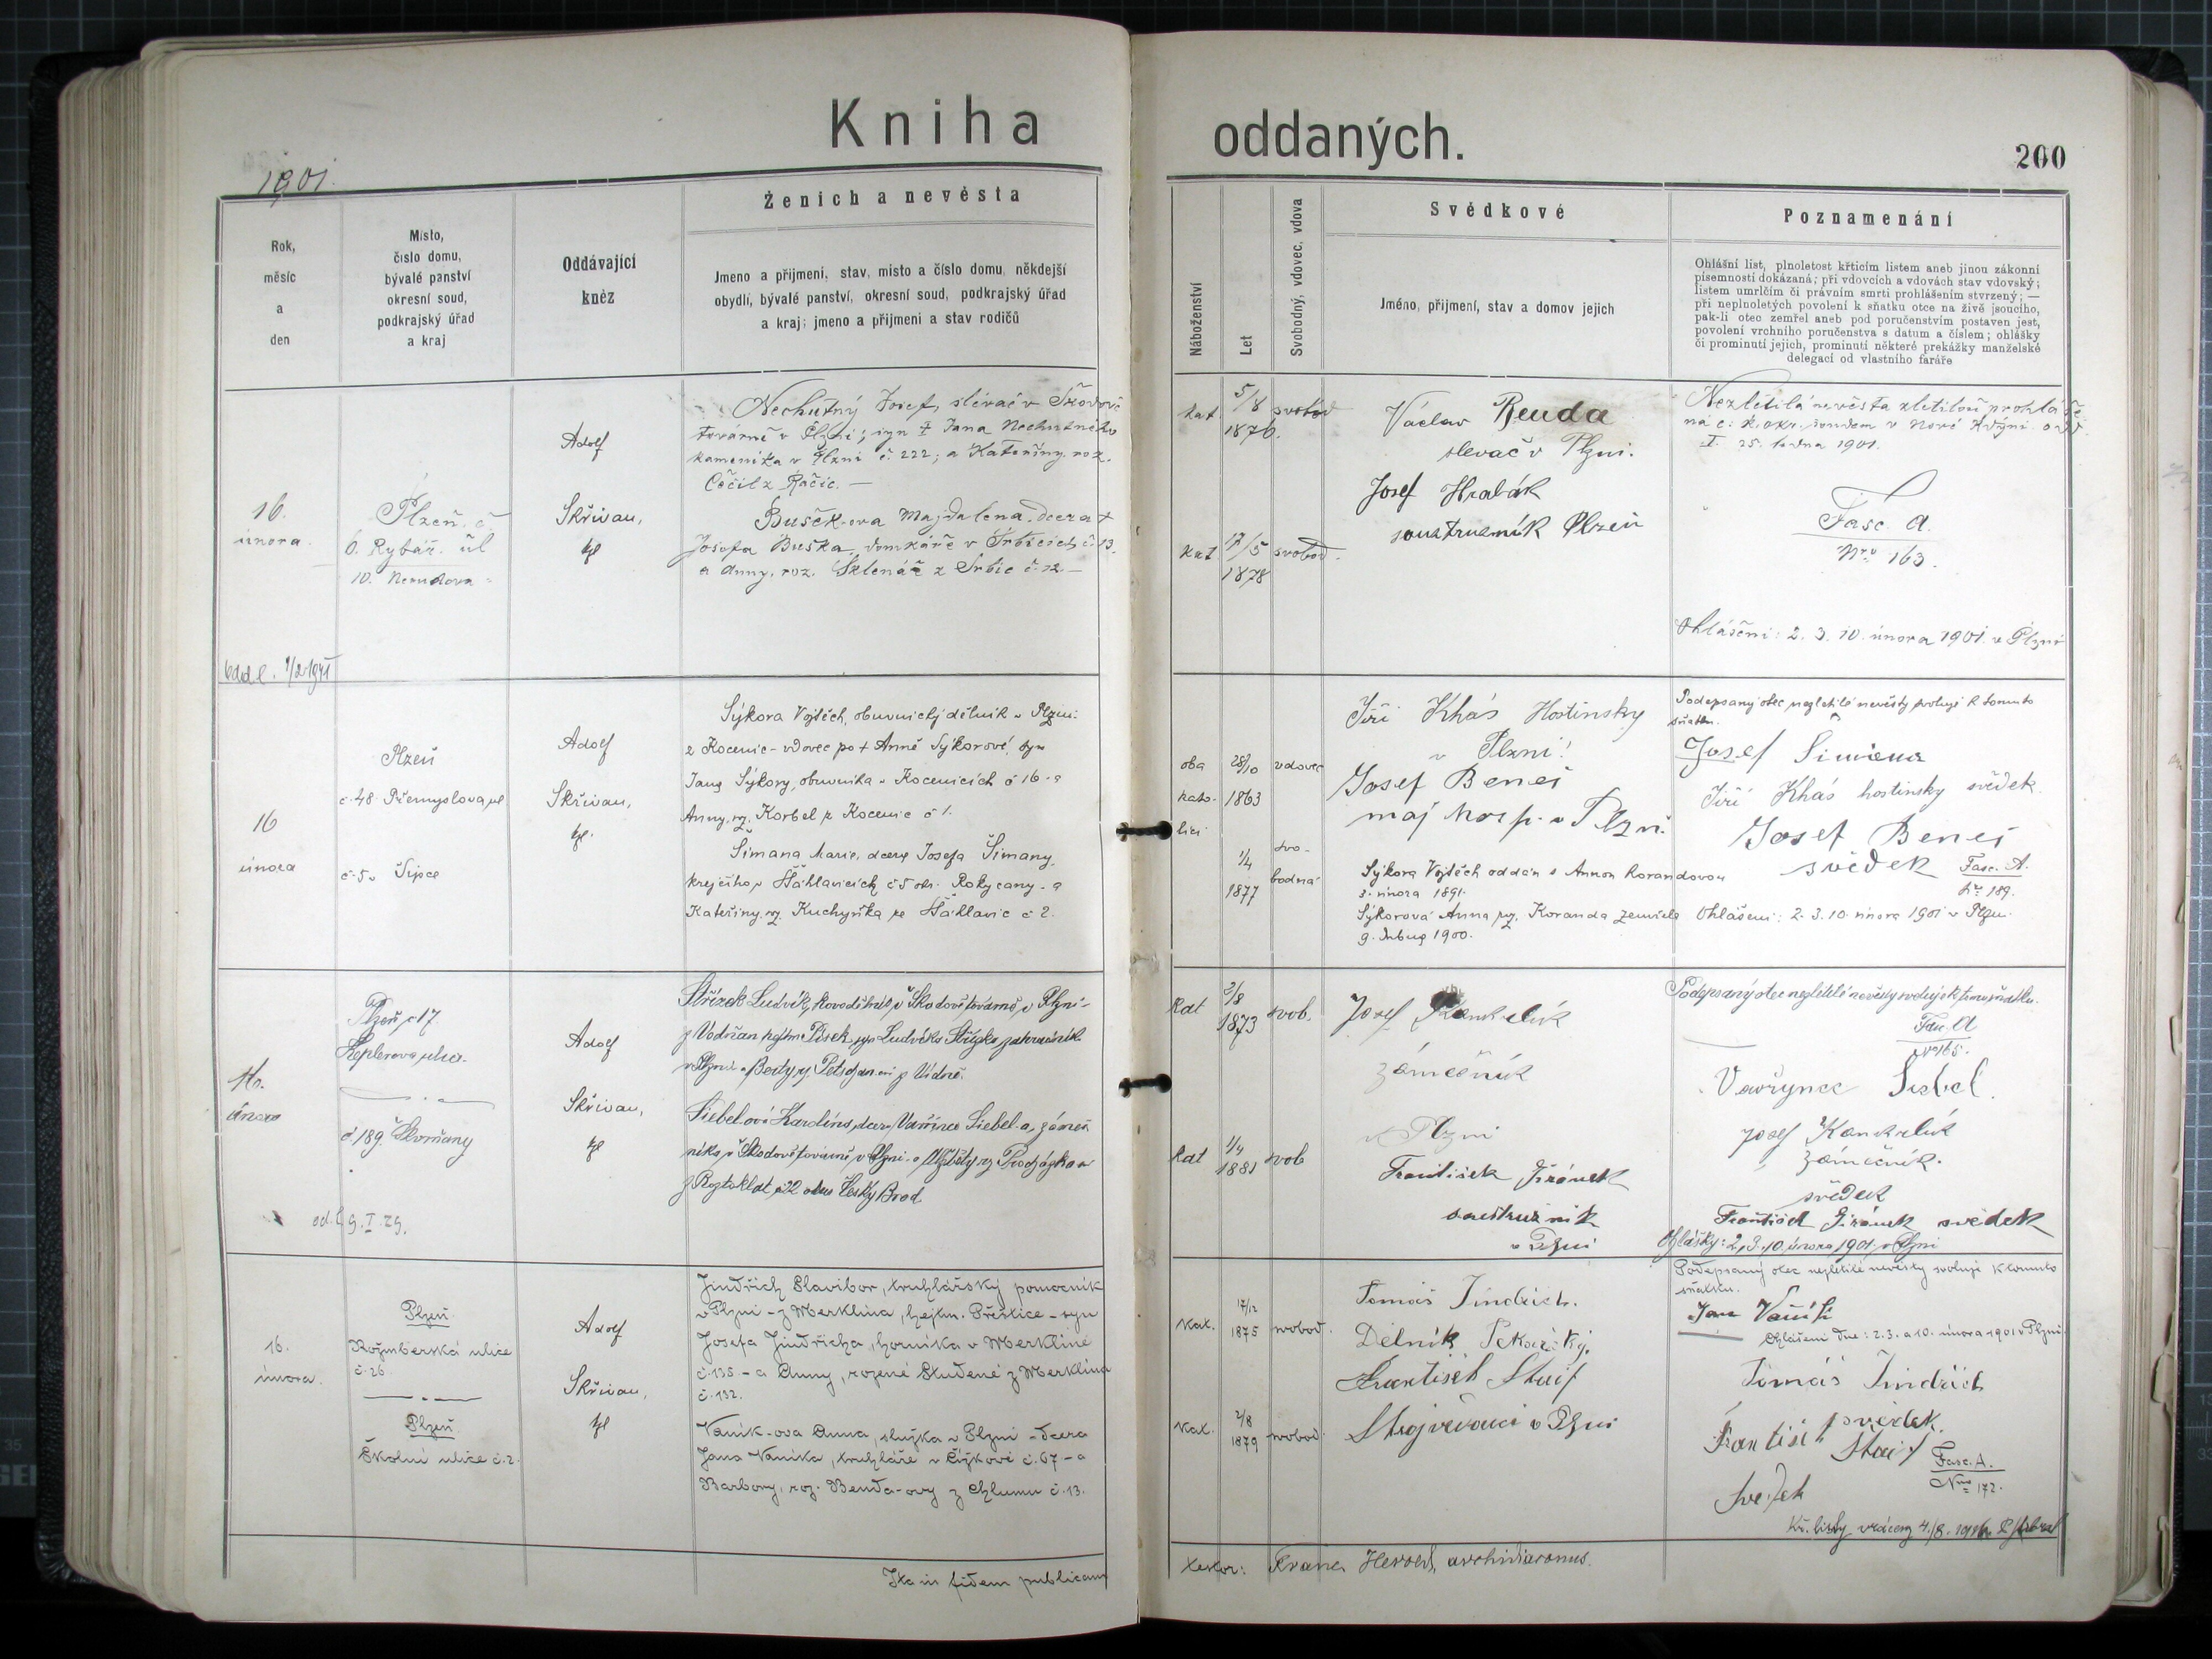 Kniha oddaných.
1901.
200
Rok,
měsíc
a
den
Místo,
číslo domu,
bývalé panství
okresní soud,
podkrajský úřad
a kraj
Oddávající
kněz
Ženich a nevěsta
Jmeno a přijmení, stav, misto a číslo domu, někdejší
obydlí, bývalé panství, okresní soud, podkrajský úřad
a kraj; jmeno a přijmeni a stav rodičů
Náboženství
Let
Svobodný, vdovec, vdova
Svědkové
Jméno, přijmení, stav a domov jejich
Poznamenání
Ohlášní list, plnoletost křticím listem aneb jinou zákonní
písemností dokázaná; při vdovcích a vdovách stav vdovský;
listem umrlčím či právním smrti prohlášením stvrzený; —
při neplnoletých povolení k sňatku otce na živě jsoucího,
pak-li otec zemřel aneb pod poručenstvím postaven jest,
povolení vrchního poručenstva s datum a číslem; ohlášky
či prominutí jejich, prominutí některé prekážky manželské
delegací od vlastního faráře
16.
února.
Plzeň. č.
6. Rybář. úl
10. Nerudova
Adolf
Skřivan,
kpl
Nechutný Josef, slévač v Škodově
továrně v Plzni; syn † Jana Nechutného
kameníka v Plzni č. 222; a Kateřiny, roz.
z Račic. —
Bušek-ova Majdalena, dcera †
Josefa Buška, domkáře v Srbicích č. 13
a Anny, roz. Sklenář z Srbic č. 12. —
kat.
5/8
1876.
svobod
kat
17/5
1878
svobod.
Václav Benda
slevač v Plzni.
Josef Hrabák
soustružník Plzeň
Nezletilá nevěsta zletilou prohláše
ná c. k. okr. soudem v Nové Kdyni odd.
I. 25. ledna 1901.
Fasc. A.
Nro 163.
Ohlášeni: 2. 3. 10. února 1901. v Plzni
16
února
Plzeň
č. 48 Přemyslova ul.
č. 5
Adolf
Skřivan,
kpl.
Sýkora Vojtěch, obuvnický dělník v Plzni-
z Kocenic - vdovec po † Anně Sýkorové, syn
Jana Sýkory, obuvníka v Kocenicích č 16 - a
Anny, rz. Korbel z Kocenic č 1.
Šimana Marie, dcera Josefa Šimany,
krejčího v Háhlavicích č 5 okr. Rokycany - a
Kateřiny, rz. Kuchyňka ze Háhlavic č 2.
oba
kato-
líci
28/10
1863
vdovec
1/4
1877
svo-
bodná
Jiří Khás Hostinsky
v Plzni!
Josef Beneš
v Plzni.
Sýkora Vojtěch oddán s Annou Korandovou
3. února 1891.
Sýkorová Anna rz. Koranda zemřela
9. dubna 1900.
Podepsaný otec nezletilé nevěsty svoluje k tomuto
sňatku.
Josef Šimana
Jiří Khás hostinsky svědek
Josef Beneš
svědek
Fasc. A.
Nro 189.
Ohlášeni: 2. 3. 10. února 1901 v Plzni.
16.
února
Plzeň č 17
Keplerova ulice.
č. 189. Skvrňany
Adolf
Skřivan,
kpl
Střízek Ludvík, kovodělník v Škodově továrně v Plzni-
z Vodňan hejtm. Písek, syn Ludvíka Střízka, zahradník
v Plzni a Berty rz. z Vídně.
Siebel-ová Karolina, dcera Vavřince Siebel-a, zámeč
níka v Škodově továrně v Plzni - a Alžběty rz. Procházka
z Roztoklat č 22 okres Český Brod
Kat
3/8
1873
svob.
Kat
1/4
1881
svob
Josef Konkelík
zámečník
v Plzni
František Jiránek
soustružník
v Plzni
Podepsaný otec nezletilé nevěsty svoluje k tomu sňatku.
Fasc. A
Nro 165.
Vavřynec Siebel.
Josef Konkelík
zámečník.
svědek
František Jiránek svědek
Ohlášky: 2, 3. 10. února 1901 v Plzni
16.
února.
Plzeň
Rožmberská ulice
č. 26.
Plzeň
Školní ulice č. 2.
Adolf
Skřivan,
kpl
Jindřich Slavibor, truhlářský pomocník
v Plzni - z Merklína, hejtm. Přeštice - syn
Josefa Jindřicha, horníka v Merklíně
č. 135 - a Anny, rozené Studené z Merklína
č. 132.
Vaník-ova Anna, služka v Plzni - dcera
Jana Vaníka, truhláře v Čížkově č. 67 - a
Barbory, roz. Benda-ovy z Chlumu č. 13.
Kat.
17/12
1875
svobod.
Kat.
2/8
1879
svobod.
Tomáš Jindřich.
Dělník
František Štaif
Strojvedoucí v Plzni
Podepsaný otec nezletilé nevěsty svoluje k tomuto
sňatku.
Jan Vaník
Ohlášeni dne: 2. 3. a 10. února 1901 v Plzni.
Tomáš Jindřich
svědek.
František Štaif
Fasc. A.
Nro 172.
Svědek
Kř. listy vráceny 4./8.
Ita in fidem publicam
testor: Franc. Herold, archidiaconus.